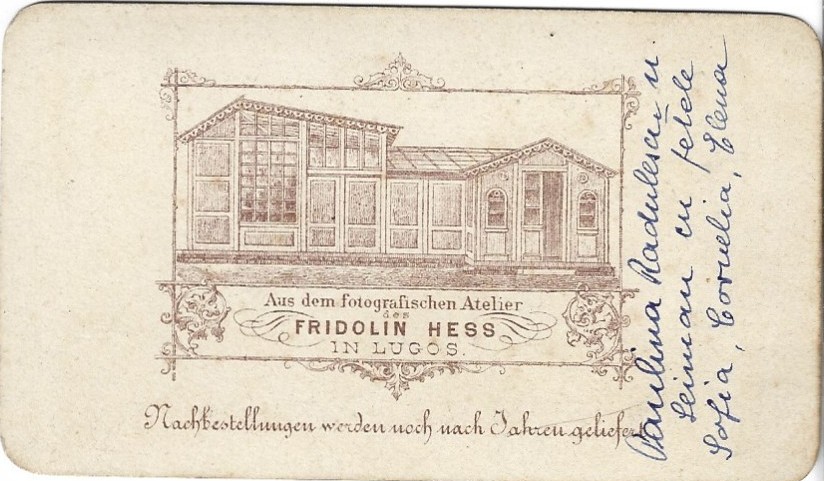 Aus dem fotografischen Atelier
des
FRIDOLIN HESS
IN LUGOS.
Nachbestellungen werden noch nach Jahren geliefert
Paulina Radulescu n
Seiman cu fetele
Sofia, Cornelia, Elena